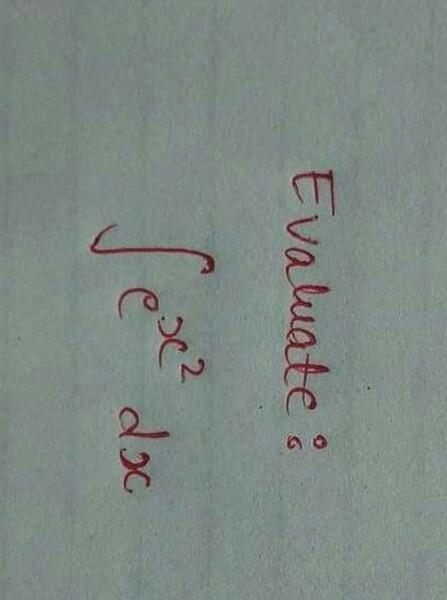 Evaluate:
∫ e^x² dx